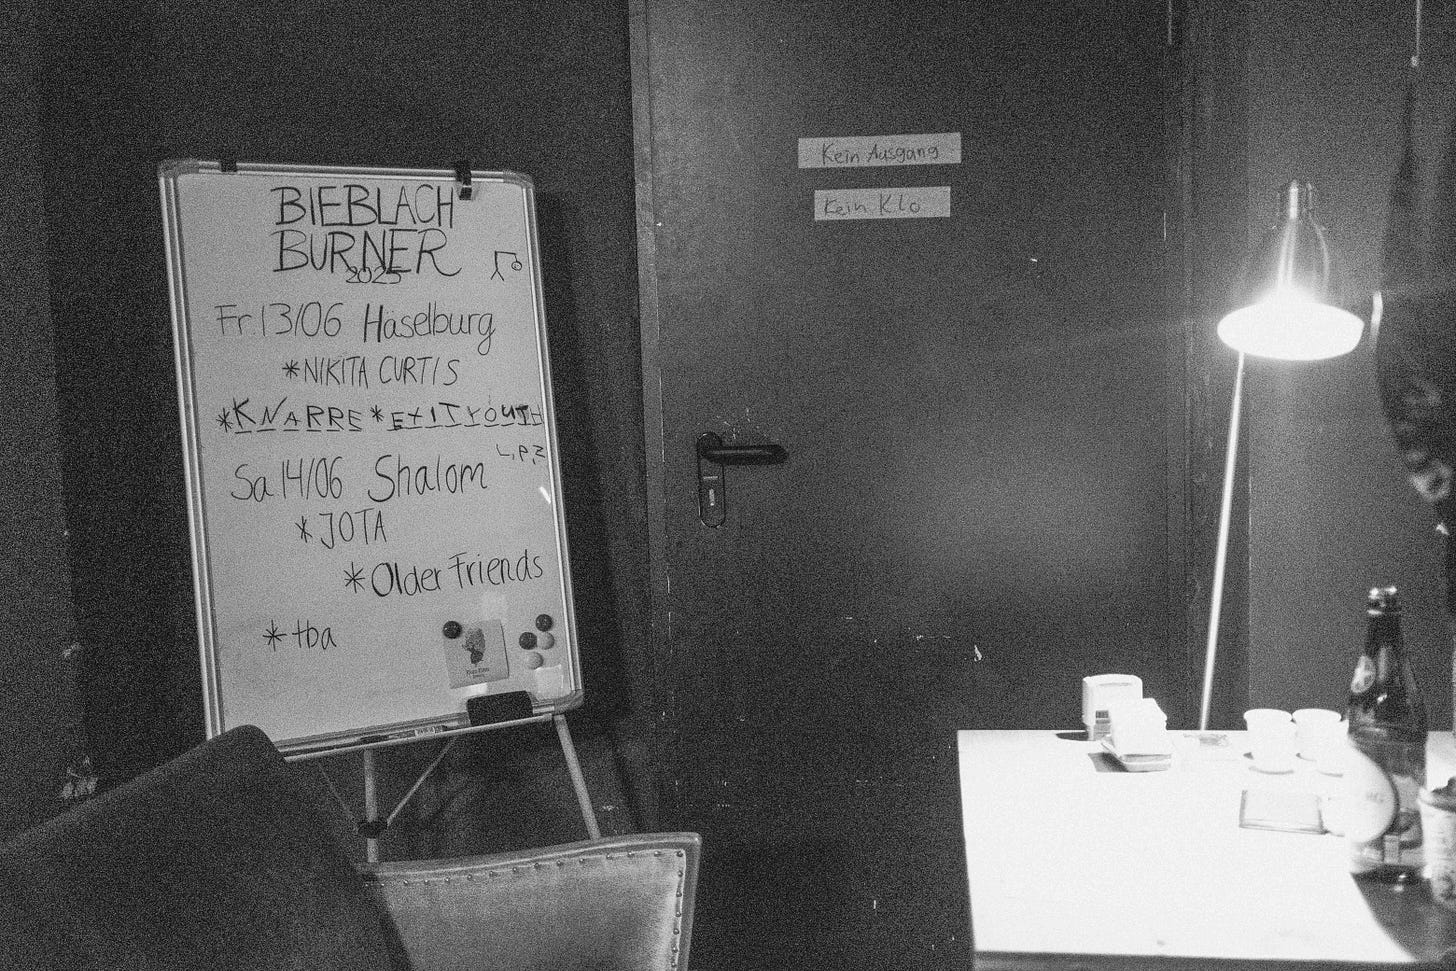 BIEBLACH
BURNER
2025
Fr.13/06 Häselburg
*NIKITA CURTIS
*KNARRE *EXITYOUTH
L,P,Z
Sa 14/06 Shalom
*JOTA
*Older Friends
*tba
Kein Ausgang
Kein Klo